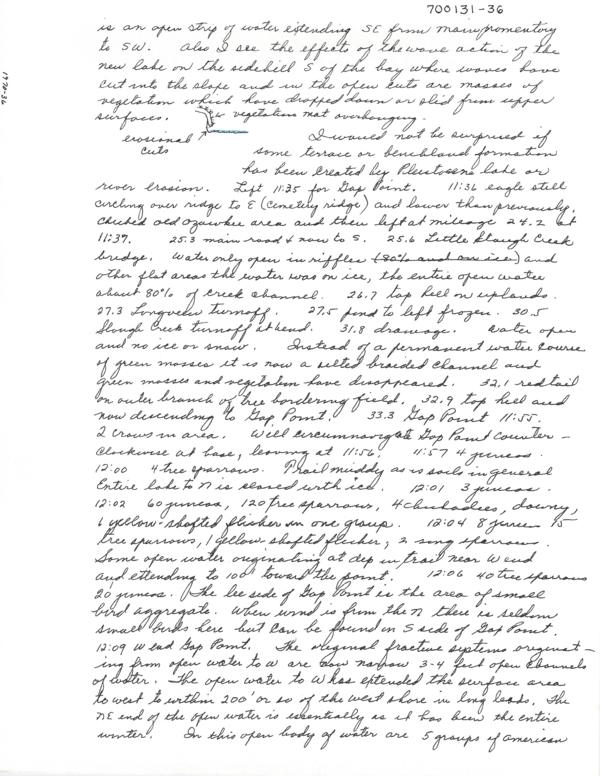 700131-36
is an open strip of water extending SE from main promontory
to SW. Also I see the effects of the wave action of the
new lake on the sidehill S of the bay where waves have
cut into the slope and in the open cuts are masses of
vegetation which have dropped down or slid from upper
surfaces. vegetation mat overhanging.
erosional cuts
I would not be surprised if
some terrace or benchland formation
has been created by Pleistocene lake or
river erosion. Left 11:35 for Gap Point. 11:36 eagle still
circling over ridge to E (cemetery ridge) and lower than previously.
Checked old Ozawkie area and then left at mileage 24.2 at
11:39. 25.3 main road & now to S. 25.6 Little Slough Creek
bridge. Water only open in riffles (80% and on ice) and
other flat areas the water was on ice, the entire open water
about 80% of creek channel. 26.7 top hill on uplands.
27.3 Longview turnoff. 27.5 pond to left frozen. 30.5
Slough Creek turnoff at bend. 31.8 drainage. Water open
and no ice or snow. Instead of a permanent water course
of green mosses it is now a silted braided channel and
green mosses and vegetation have disappeared. 32.1 redtail
on outer branch of tree bordering field. 32.9 top hill and
now descending to Gap Point. 33.3 Gap Point 11:55.
2 crows in area. Will circumnavigate Gap Point counter-
clockwise at base, leaving at 11:56. 11:57 4 juncos.
12:00 4 tree sparrows. Trail muddy as is soils in general
Entire lake to N is closed with ice. 12:01 3 juncos.
12:02 60 juncos, 120 tree sparrows, 4 chickadees, downy,
1 yellow-shafted flicker in one group. 12:04 8 juncos 15
tree sparrows, 1 yellow-shafted flicker, 2 song sparrows.
Some open water originating at dip in trail near W end
and extending to 100' toward the point. 12:06 40 tree sparrows
20 juncos. The lee side of Gap Point is the area of small
bird aggregate. When wind is from the N there is seldom
small birds here but can be found on S side of Gap Point.
12:09 W end Gap Point. The original fractive systems originat-
ing from open water to W are now narrow 3-4 feet open channels
of water. The open water to W has extended the surface area
to west to within 200' or so of the west shore in long leads. The
NE end of the open water is essentially as it has been the entire
winter. In this open body of water are 5 groups of American